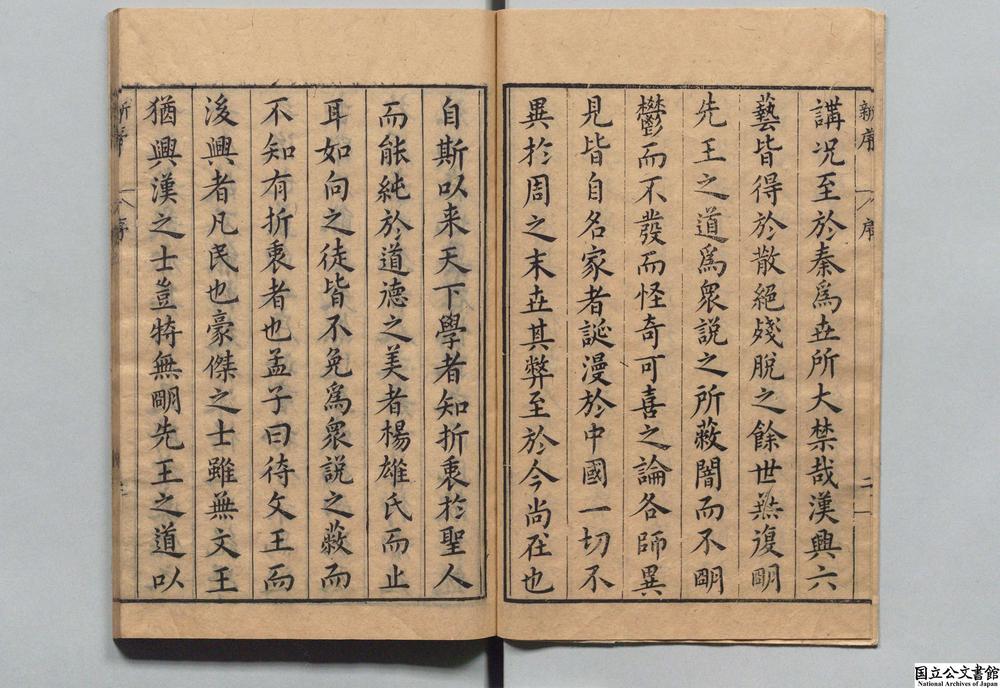 新序
序
二
講况至於秦爲丗所大禁哉漢興六
藝皆得於散絕殘脫之餘世無復明
先王之道爲衆說之所蔽闇而不明
鬱而不發而怪奇可喜之論各師異
見皆自名家者誕漫於中國一切不
異於周之末丗其弊至於今尚在也
自斯以来天下學者知折衷於聖人
而能純於道德之美者楊雄氏而止
耳如向之徒皆不免爲衆說之蔽而
不知有折衷者也孟子曰待文王而
後興者凡民也豪傑之士雖無文王
猶興漢之士豈特無明先王之道以
新序
序
国立公文書館
National Archives of Japan